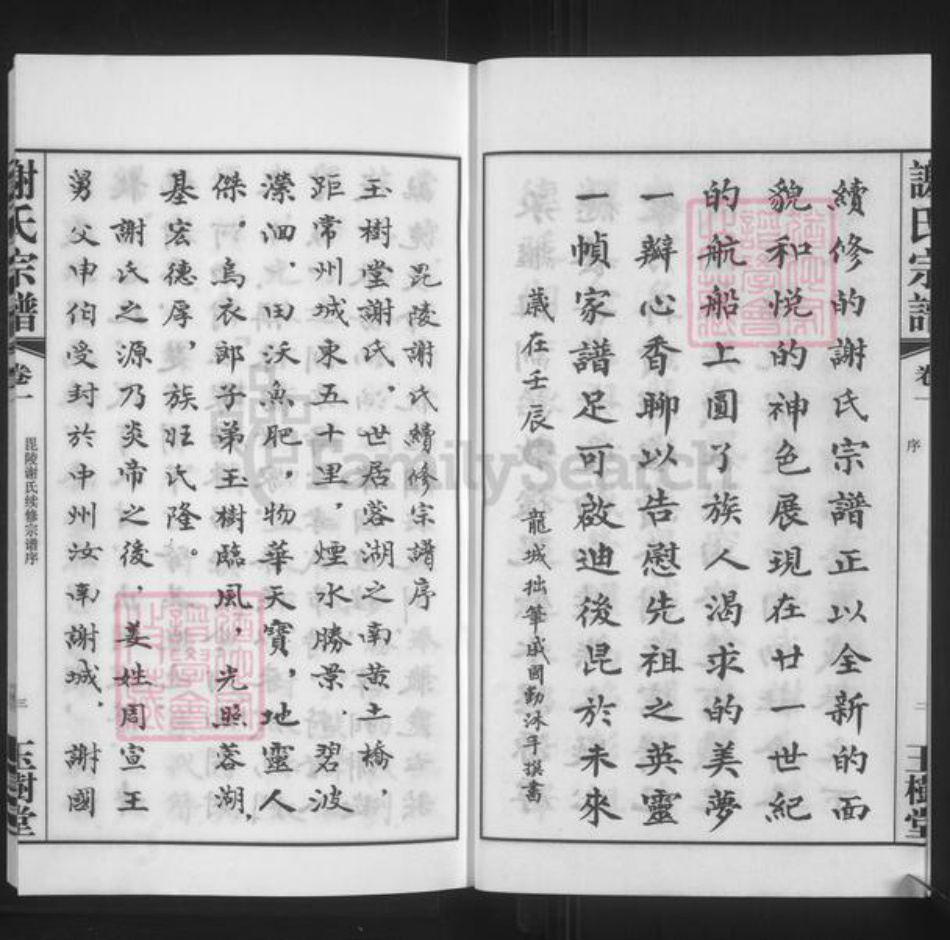 謝氏宗譜
卷一
序
二
玉樹堂
續修的謝氏宗譜正以全新的面
貌和悅的神色展現在廿一世紀
的航船上圓了族人渴求的美夢
一瓣心香聊以告慰先祖之英靈
一幀家譜足可啟迪後昆於未來
歲在壬辰 龍城拙筆戚國勤沐手撰書
毘陵謝氏續修宗譜序
玉樹堂謝氏，世居蓉湖之南黄土橋，
距常州城東五十里，煙水勝景，碧波
瀠洄，田沃魚肥，物華天寶，地靈人
傑，烏衣郎子弟玉樹臨風，光照蓉湖，
基宏德厚，族旺氏隆。
謝氏之源乃炎帝之後，姜姓周宣王
舅父申伯受封於申州汝南謝城，謝國
謝氏宗譜
卷一
毘陵谢氏续修宗谱序
三
玉樹堂
FamilySearch